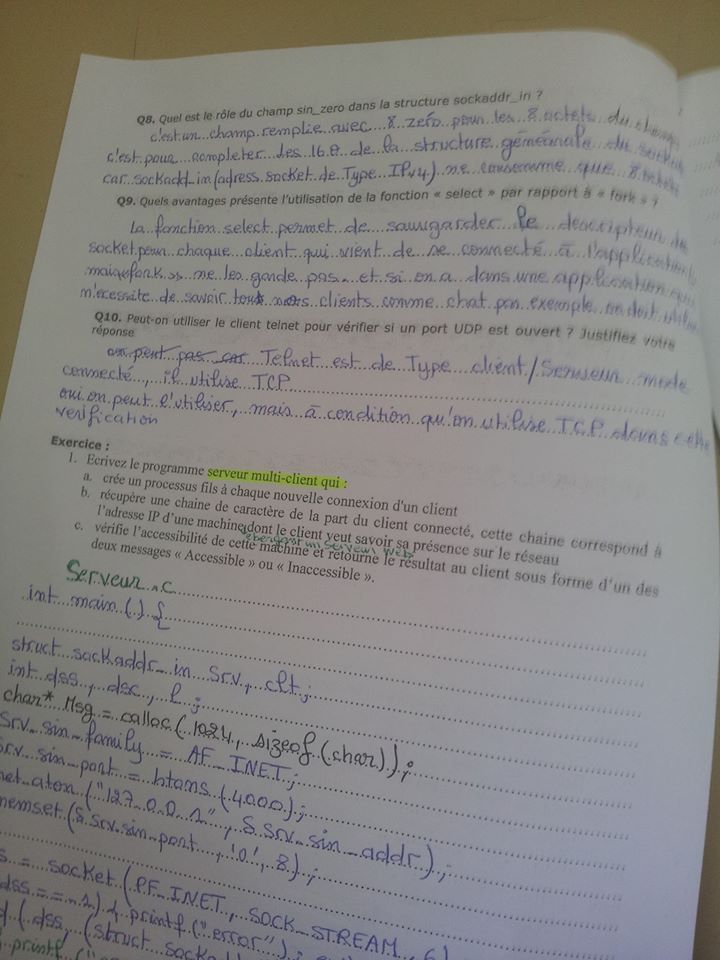 Q8. Quel est le rôle du champ sin_zero dans la structure sockaddr_in ?
c'est un champ remplie avec 8 zéro pour les 8 octets du champ
c'est pour completer les 16.0 de la structure générale du socket
car sockadd_in (adress socket de Type IPv4) ne consomme que 8
Q9. Quels avantages présente l'utilisation de la fonction « select » par rapport à « fork » ?
La fonction select permet de saugarder le descripteur de
socket pour chaque client qui vient de se connecté à l'application
mais fork ne les garde pas et si on a dans une application qui
n'ecessite de savoir tous nos clients comme chat par exemple on doit utilise
Q10. Peut-on utiliser le client telnet pour vérifier si un port UDP est ouvert ? Justifiez votre
réponse
on peut pas car Telnet est de Type client/Serveur mode
connecté, il utilise TCP
oui on peut l'utiliser, mais à condition qu'on utilise TCP dans cette
verification
Exercice :
1. Ecrivez le programme serveur multi-client qui :
a. crée un processus fils à chaque nouvelle connexion d'un client
b. récupère une chaine de caractère de la part du client connecté, cette chaine correspond à
l'adresse IP d'une machine dont le client veut savoir sa présence sur le réseau
hébergeant un serveur web
c. vérifie l'accessibilité de cette machine et retourne le résultat au client sous forme d'un des
deux messages « Accessible » ou « Inaccessible ».
Serveur.c
int main () {
struct sockaddr_in srv, clt;
int dss, dsc, l;
char* Msg = calloc (1024, sizeof (char));
srv.sin_family = AF_INET;
srv.sin_port = htons (4000);
net_aton ("127.0.0.1", & srv.sin_addr);
memset (& srv.sin_port, '0', 8);
s = socket (PF_INET, SOCK_STREAM, 6)
dss == -1) { printf ("error");
d (dss, (struct socka
printf ("